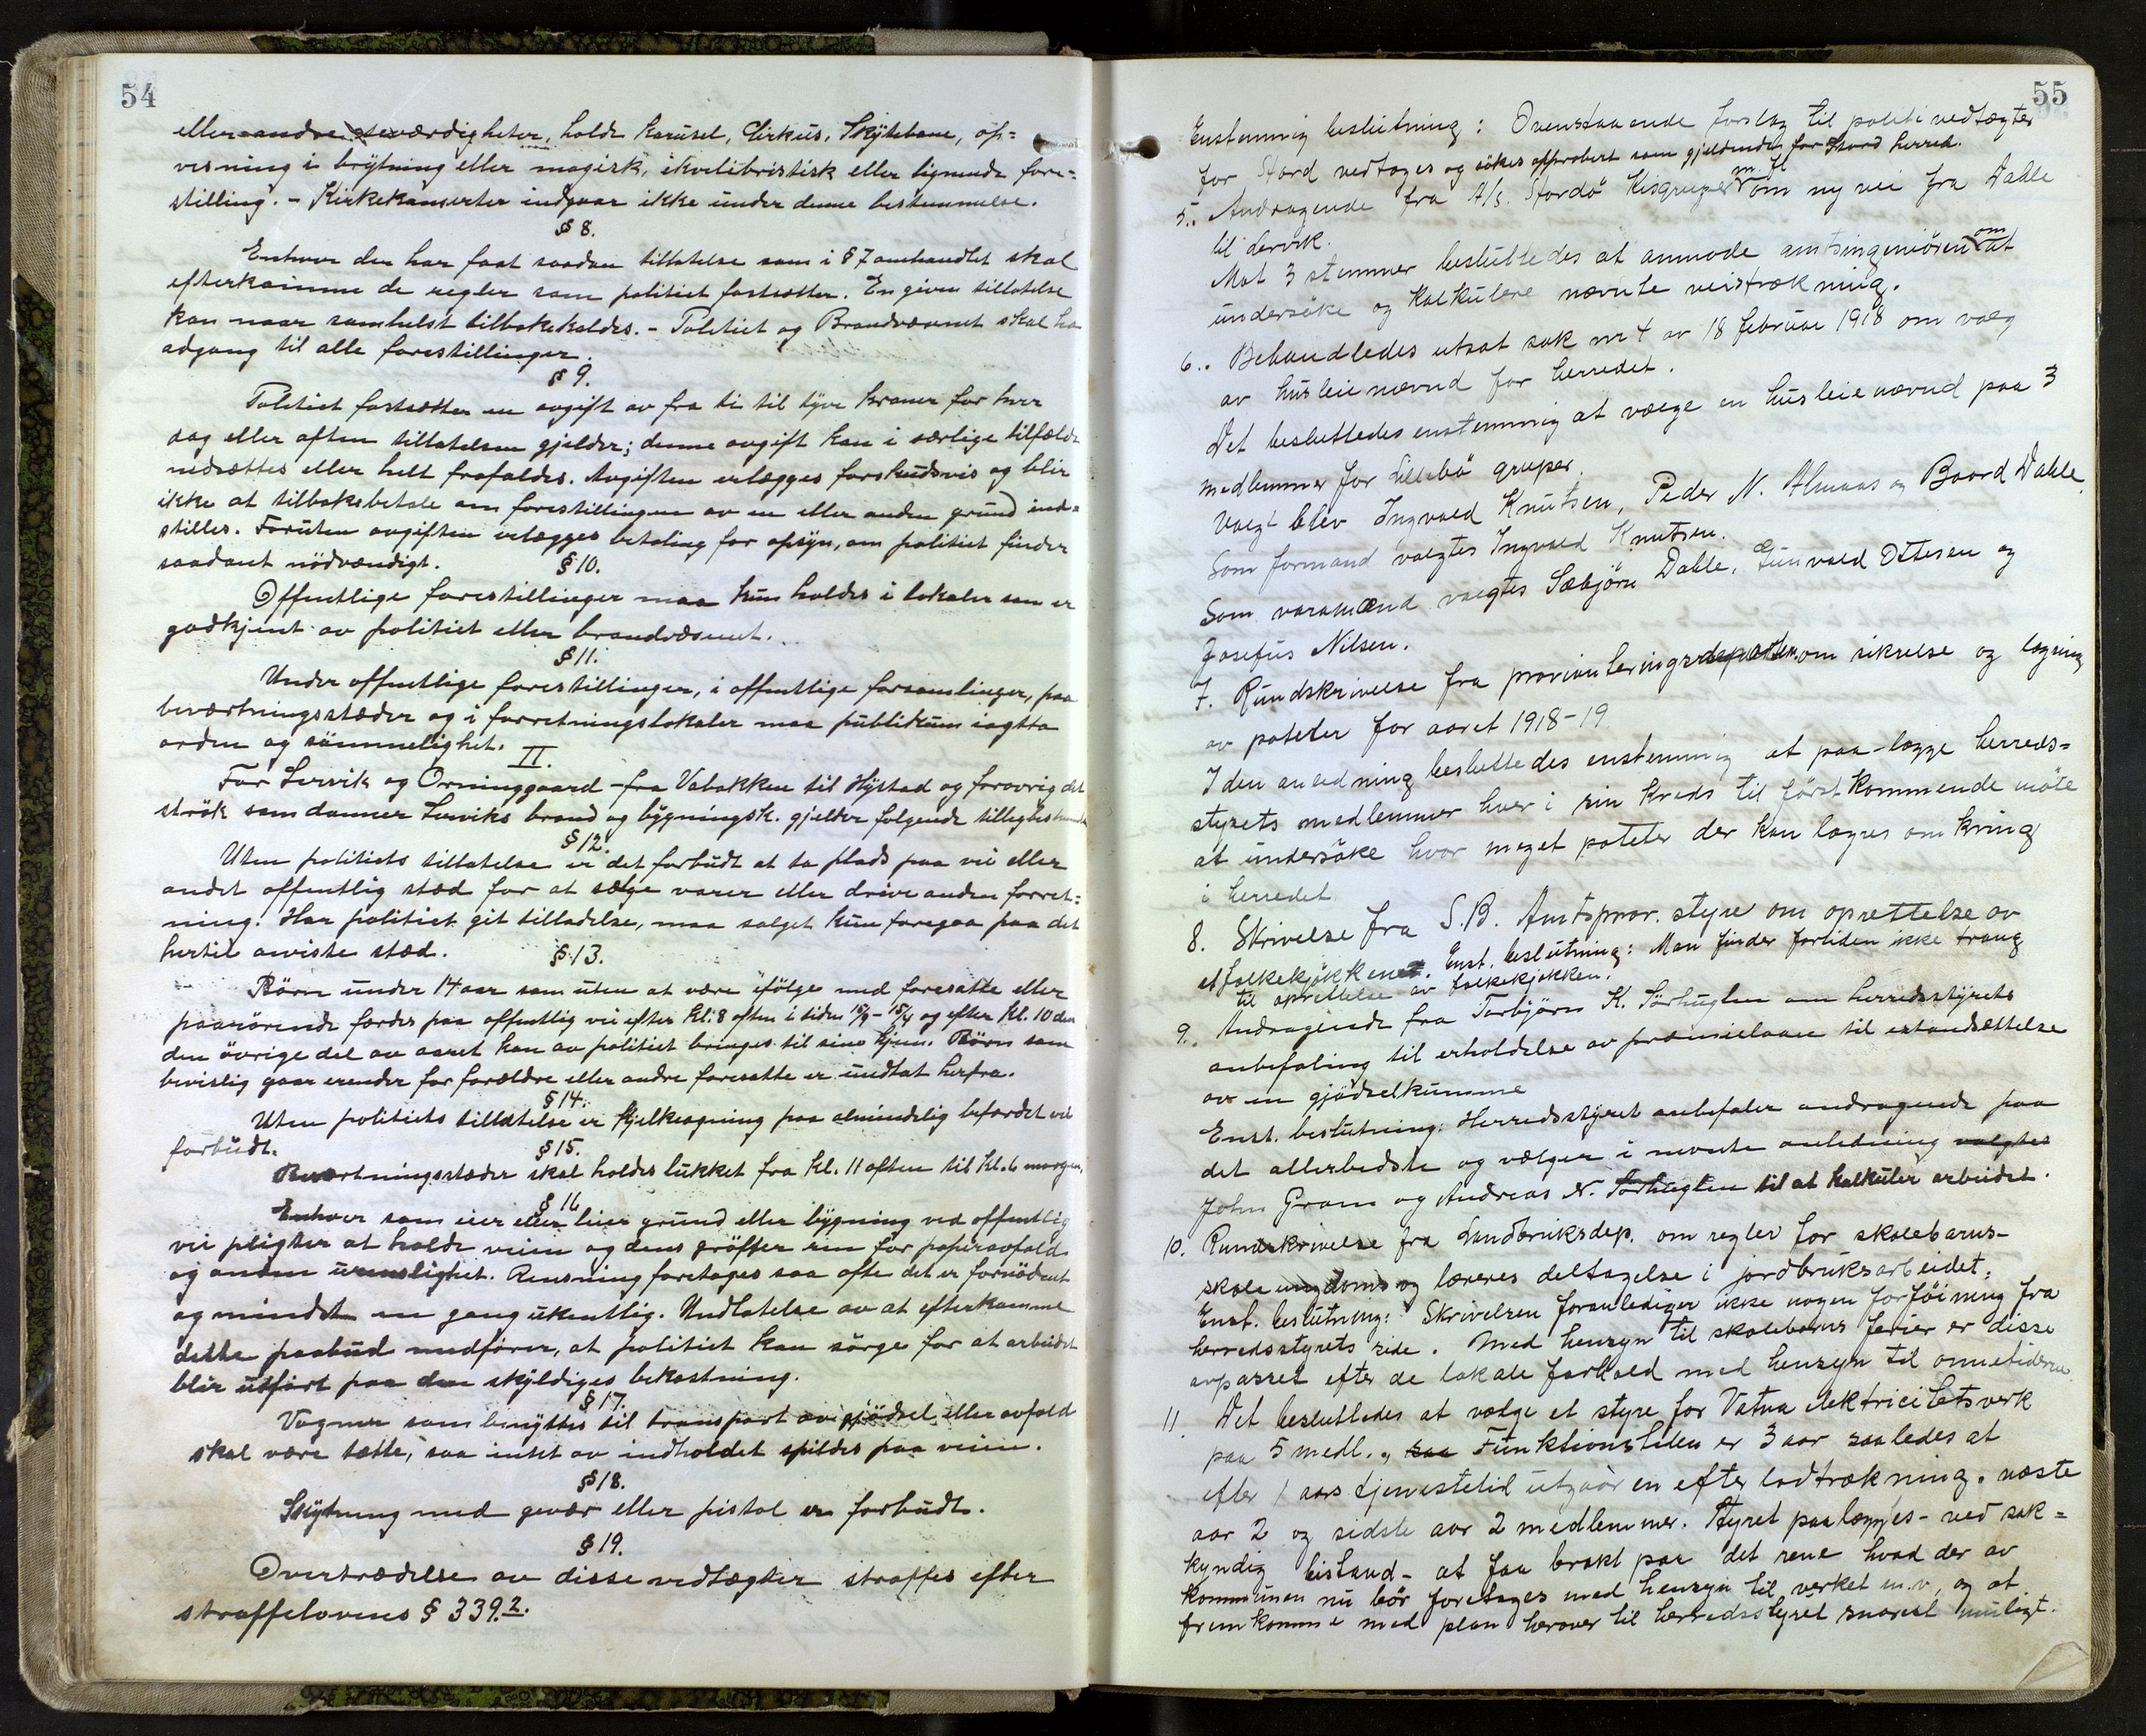 54
eller andre seværdigheter, holde karusel, Cirkus, Skytebane, op=
visning i brytning eller magisk, ekvilibristisk eller lignende fore=
stilling. - Kirkekonserter indgaar ikke under denne bestemmelse.
§ 8.
Enhver der har faat saadan tillatelse som i § 7 omhandlet skal
efterkomme de regler som politiet fastsætter. En given tillatelse
kan naar somhelst tilbakekaldes. - Politiet og Brandvæsenet skal ha
adgang til alle forestillinger.
§ 9.
Politiet fastsætter en avgift av fra ti til tyve kroner for hver
dag eller aften tillatelsen gjelder; denne avgift kan i særlige tilfælde
nedsættes eller helt frafaldes. Avgiften erlægges forskudsvis og blir
ikke at tilbakebetale om forestillingen av en eller anden grund ind=
stilles. Foruten avgiften erlægges betaling for opsyn, om politiet finder
saadant nödvendigt.
§ 10.
Offentlige forestillinger maa kun holdes i lokaler som er
godkjent av politiet eller brandvæsenet.
§ 11.
Under offentlige forestillinger, i offentlige forsamlinger, paa
beværtningsstæder og i forretningslokaler maa publikum iagtta
orden og sömmelighet.
II.
For Lervik og Orninggaard - fra Vabakken til Hystad og forövrig det
strök som danner Lerviks brand og bygningsk. gjelder følgende tillegsbestemmelser
§ 12.
Uten politiets tillatelse er det forbudt at ta plads paa vei eller
andet offentlig stæd for at sælge varer eller drive anden forret=
ning. Har politiet git tilladelse, maa salget kun foregaa paa det
hertil anviste stæd.
§ 13.
Börn under 14 aar som uten at være ifölge med foresatte eller
paarörende færdes paa offentlig vei efter kl. 8 aften i tiden 15/9 - 15/4 og efter kl. 10 den
den övrige del av aaret kan av politiet bringes til sine hjem. Börn som
bevislig gaar erender for forældre eller andre foresatte er undtat herfra.
§ 14.
Uten politiets tillatelse er kjelkeagning paa almindelig befærdet vei
forbudt.
§ 15.
Beværtningsstæder skal holdes lukket fra kl. 11 aften til kl. 6 morgen.
§ 16
Enhver som eier eller leier grund eller bygning ved offentlig
vei pligter at holde veien og dens gröfter ren for papiravfald
og anden urenslighet. Rensning foretages saa ofte det er fornödent
og mindst en gang ukentlig. Undlatelse av at efterkomme
dette paabud medförer, at politiet kan sörge for at arbeidet
blir utfört paa den skyldiges bekostning.
§ 17.
Vogner som benyttes til transport av gjödsel eller avfald
skal være tætte, saa intet av indholdet spildes paa veien.
§ 18.
Skytning med gevær eller pistol er forbudt.
§ 19.
Overtrædelse av disse vedtægter straffes efter
straffelovens § 339.2.
55
Enstemmig beslutning: Ovenstaaende forslag til politivedtægter
for Stord vedtages og sökes approbert som gjeldende for Stord herred.
5. Andragende fra A/s. Stordö Kisgruper m. fl. om ny vei fra Dahle
til Lervik.
Mot 3 stemmer besluttedes at anmode amtsingeniören om at
undersöke og kalkulere nævnte veistrækning.
6. Behandledes utsat sak nr 4 av 18 februar 1918 om valg
av husleienævnd for herredet.
Det besluttedes enstemmig at vælge en husleienævnd paa 3
medlemmer for Lillebö gruper.
Valgt blev Ingvald Knutsen, Peder N. Almaas og Baard Dahle.
Som formand valgtes Ingvald Knutsen.
Som varamænd valgtes Sæbjörn Dahle, Gunvald Ottesen og
Josefus Nilsen.
7. Rundskrivelse fra provianteringsdepartem. om sikrelse og lagring
av poteter for aaret 1918-19
I den anledning besluttedes enstemmig at paa-lægge herreds=
styrets medlemmer hver i sin kreds til förstkommende möte
at undersöke hvor meget poteter der kan lagres omkring
i herredet
8. Skrivelse fra S.B. Amtsprov. styre om oprettelse av
et folkekjökken. Enst. beslutning: Man finder fortiden ikke trang
til oprettelse av folkekjökken.
9. Andragende fra Torbjörn K. Sørhuglen om herredsstyrets
anbefaling til erholdelse av præmielaan til istandsættelse
av en gjödselkumme
Enst. beslutning: Herredsstyret anbefaler andragende paa
det allerbedste og vælger i nevnte anledning valgtes
John Gram og Andreas N. Sørhuglen til at kalkuler arbeidet.
10. Rundskrivelse fra Landbruksdep. om regler for skolebarns-
skoleungdoms og læreres deltagelse i jordbruksarbeidet.
Enst. beslutning: Skrivelsen foranlediger ikke nogen forföining fra
herredsstyrets side. Med hensyn til skolebarns ferier er disse
avpasset efter de lokale forhold med hensyn til onnetiderne.
11. Det besluttedes at vælge et styre for Vatna elektricitetsverk
paa 5 medl., saa Funktionstiden er 3 aar saaledes at
efter 1 aars tjenestetid utgaar en efter lodtrækning. næste
aar 2 og sidste aar 2 medlemmer. Styret paalægges - ved sak=
kyndig bistand - at faa brakt paa det rene hvad der av
kommunen nu bör foretages med hensyn til verket m.v, og at
fremkomme med plan herover til herredsstyret snarest muligt.